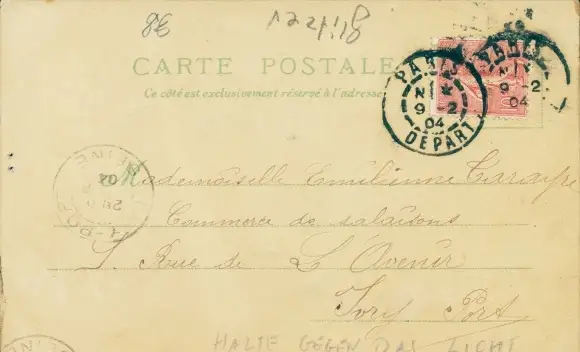 8€ 122118
CARTE POSTALE
Ce côté est exclusivement réservé à l'adresse
PARIS
9 - 2
04
DÉPART
9 - 2
04
Mademoiselle Emilienne
Commerce de salaisons
Rue de L'Avenir
Ivry Port
HALTE GEGEN DAS LICHT